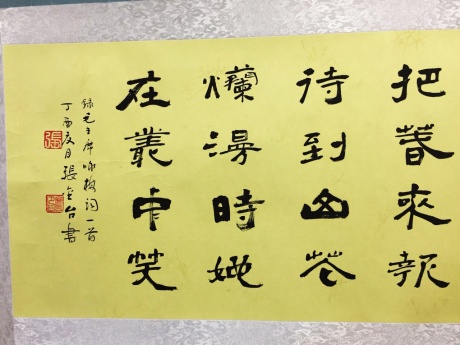 把春來報
待到山花
爛漫時她
在叢中笑
錄毛主席咏梅詞一首
丁酉夏月張金台書
張